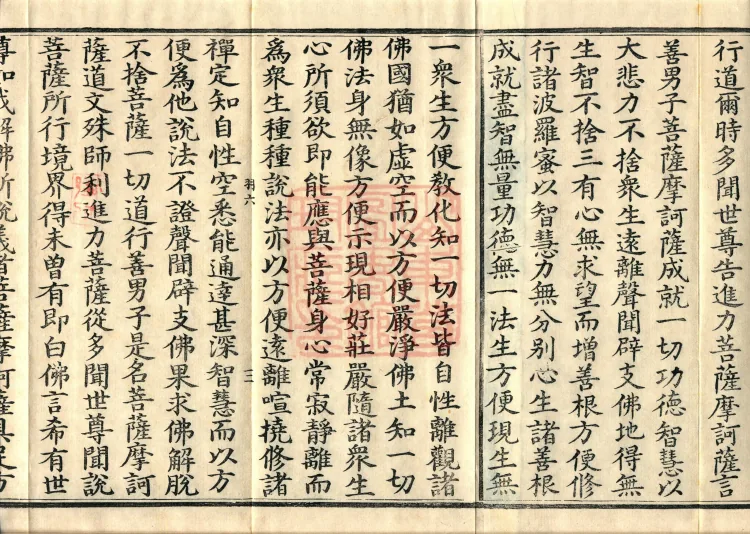 行道爾時多聞世尊告進力菩薩摩訶薩言
善男子菩薩摩訶薩成就一切功德智慧以
大悲力不捨衆生遠離聲聞辟支佛地得無
生智不捨三有心無求望而增善根方便修
行諸波羅蜜以智慧力無分别心生諸善根
成就盡智無量功德無一法生方便現生無
一衆生方便敎化知一切法皆自性離觀諸
佛國猶如虛空而以方便嚴淨佛土知一切
佛法身無像方便示現相好莊嚴隨諸衆生
心所須欲即能應與菩薩身心常寂靜離而
爲衆生種種說法亦以方便遠離喧撓修諸
羽六
三
禪定知自性空悉能通達甚深智慧而以方
便爲他說法不證聲聞辟支佛果求佛解脫
不捨菩薩一切道行善男子是名菩薩摩訶
薩道文殊師利進力菩薩從多聞世尊聞說
菩薩所行境界得未曾有即白佛言希有世
尊如我解佛所說義者菩薩摩訶薩具足方